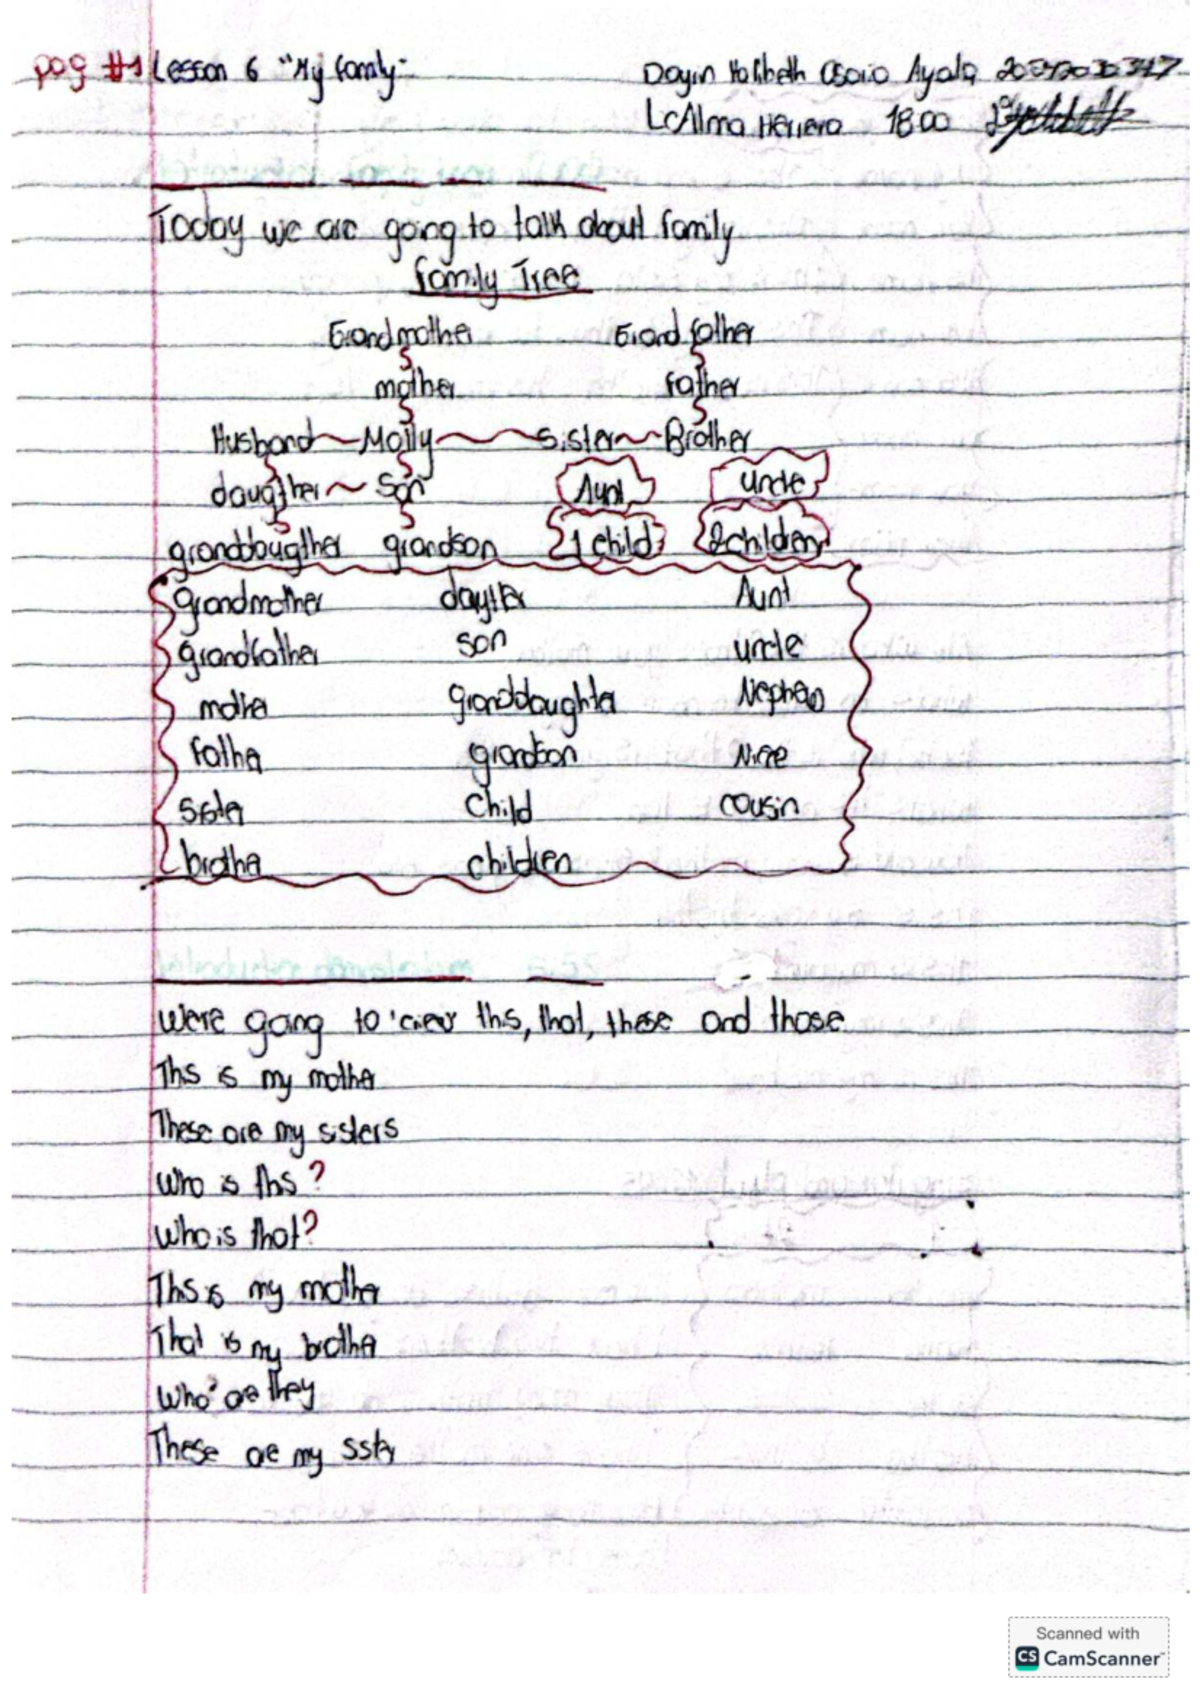 pag #1 Lesson 6 "My family"
Osorio Ayala
Lc Alma Herrera 18:00
Today we are going to talk about family
Family Tree
Grandmother Grandfather
mother father
Husband Molly sister Brother
daugther Son Aunt uncle
granddaugther grandson 1 child 2 children
grandmother daugther Aunt
grandfather son uncle
mother granddaughter Nephew
father grandson Niece
sister child cousin
brother children
Were going to view this, that, these and those
This is my mother
These are my sisters
Who is this?
Who is that?
This is my mother
That is my brother
Who are they
These are my sister
Scanned with
CS CamScanner